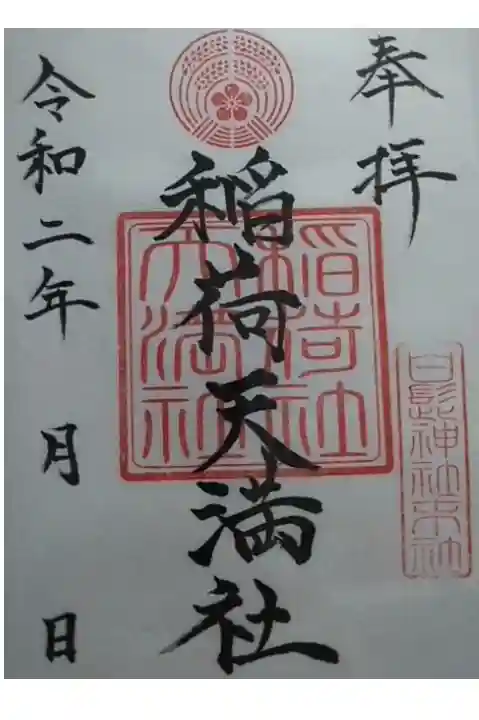 奉拝
白髭神社末社
稲荷天満社
稲荷社
天満社
令和二年 月 日